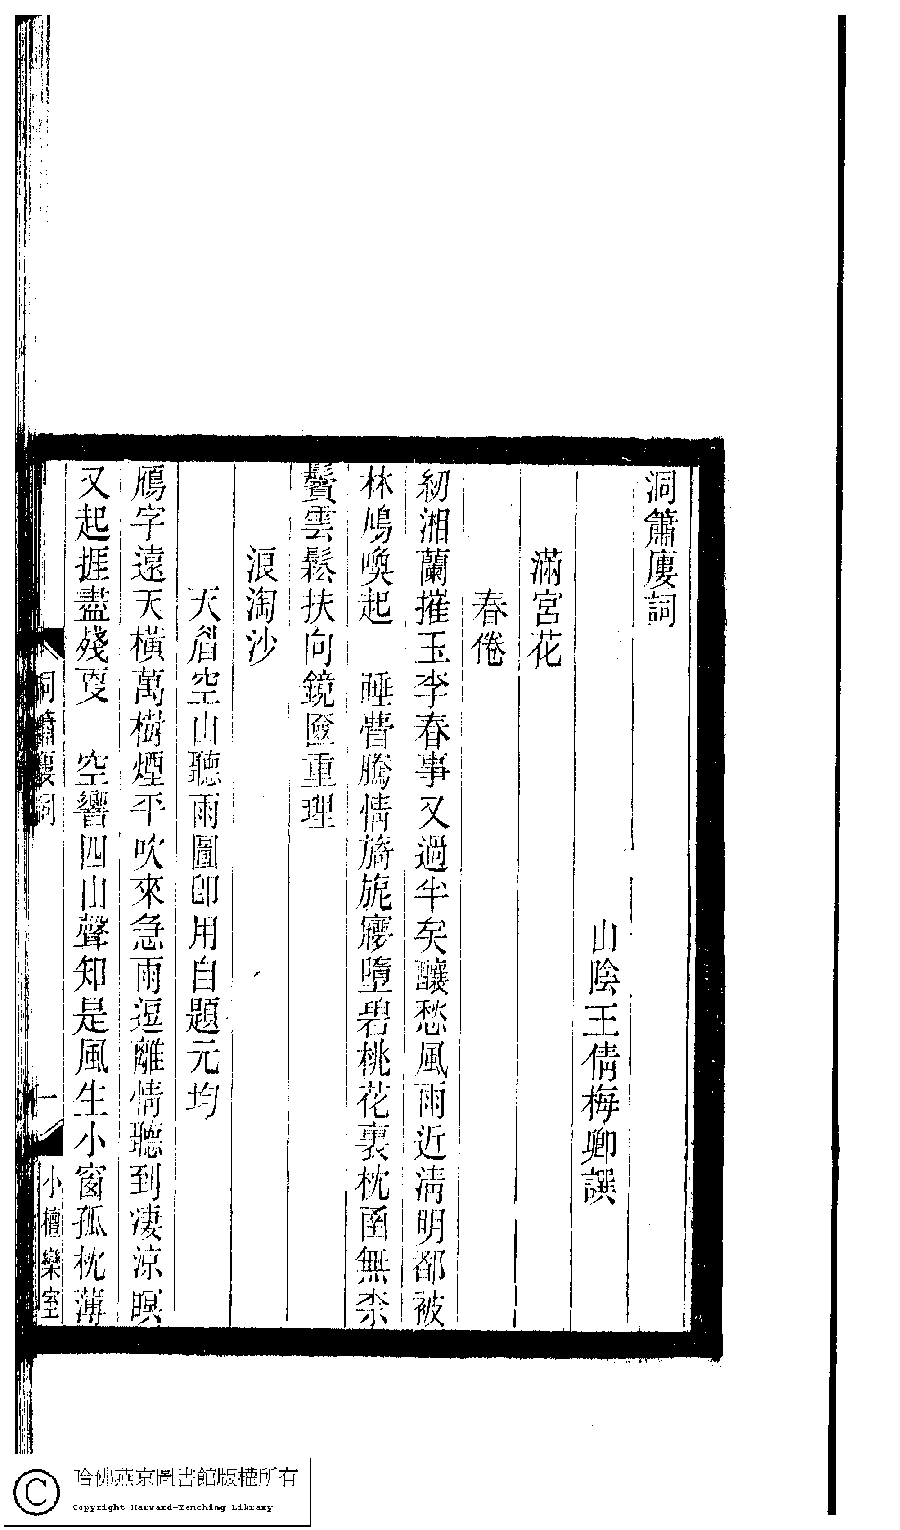 洞簫廔詞
山陰王倩梅卿譔
滿宮花
春倦
紉湘蘭摧玉李春事又過半矣釀愁風雨近淸明都被
林鳩喚起　睡瞢騰情旖旎㝱墮碧桃花裏枕圅無柰
鬢雲鬆扶向鏡匳重理
浪淘沙
天眉空山聽雨圖卽用自題元均
鴈字遠天橫萬樹煙平吹來急雨逗離情聽到凄涼瞑
又起捱盡殘更　空響四山聲知是風生小窗孤枕薄
洞簫廔詞
一
小檀欒室
哈佛燕京圖書館版權所有
Copyright Harvard-Yenching Library